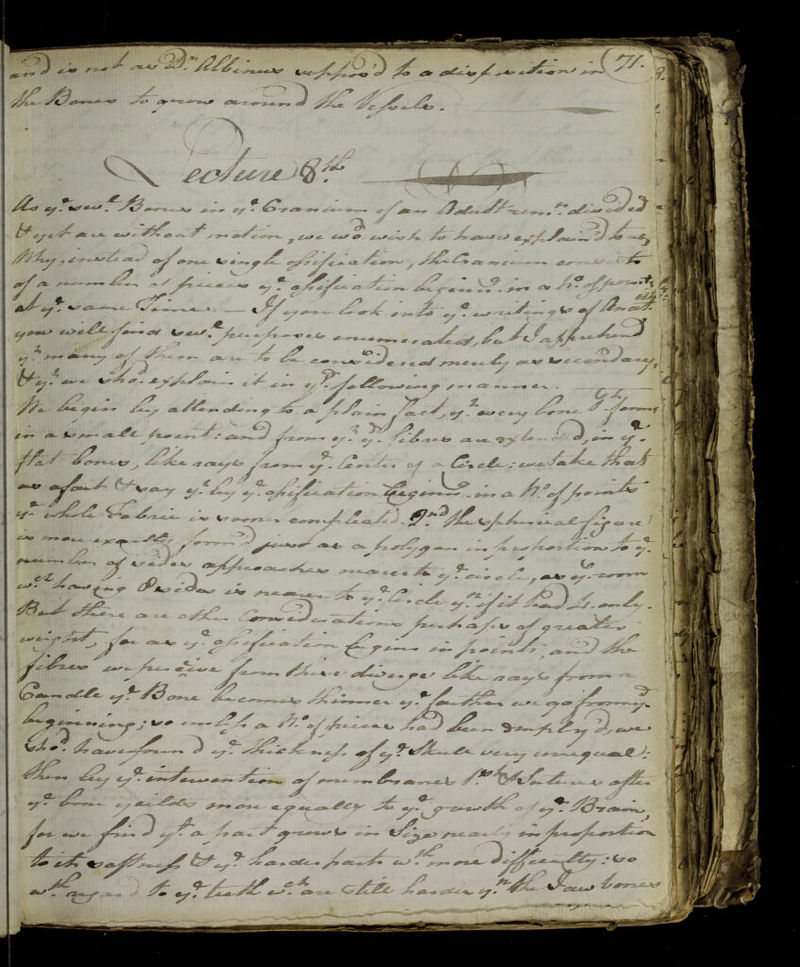 71.
and is not as Dr. Albinus suppos'd to a disposition in
the Bones to grow around the Vessels.
Lecture 8th.
As ye. sevl. Bones in ye. Cranium of an Adult remn. divided
& yet are without motion, we wod. wish to have explain'd to us,
Why, instead of one single ossification, the Cranium consists
of a number of pieces ye. ossification beginng. in a No. of points
at ye. same Time. — If you look into ye. writings of Anatists.
you will find sevl. purposes enumerated, but I apprehend
yt. many of them are to be considered merely as secondary,
& yt. we shod. explain it in ye. following manner.
We begin by attending to a plain fact, yt. every bone forms
in a small point: and from yt. ye. fibres are extended, in ye.
flat bones, like rays from ye. Center of a Circle; we take that
as a fact & say yt. by ye. ossification beginng. in a No. of points
ye. whole Fabric is sooner compleated. 2nd. the spherical figure
is more exactly form'd just as a polygon in proportion to ye.
number of sides approaches nearer to ye. circle, as ye. room
wch. having 8 sides is nearer to ye. Circle yn. if it had 4 only.
But there are other Considerations perhaps of greater
weight, for as ye. ossification begins in points, and the
fibres we perceive from thence diverge like rays from a
Candle ye. Bone becomes thinner ye. farther we go from ye.
beginning; so unless a No. of pieces had been employ'd, we
shod. have found ye. thickness of ye. Skull very unequal.
Then by ye. intervention of membranes 1st. & Sutures after
ye. bone yeilds more equally to ye. growth of ye. Brain,
for we find yt. a part grows in Size nearly in proportion
to its softness & ye. harder parts wth. more difficulty: so
wth. regard to ye. teeth wch. are still harder yn. the Jaw bones